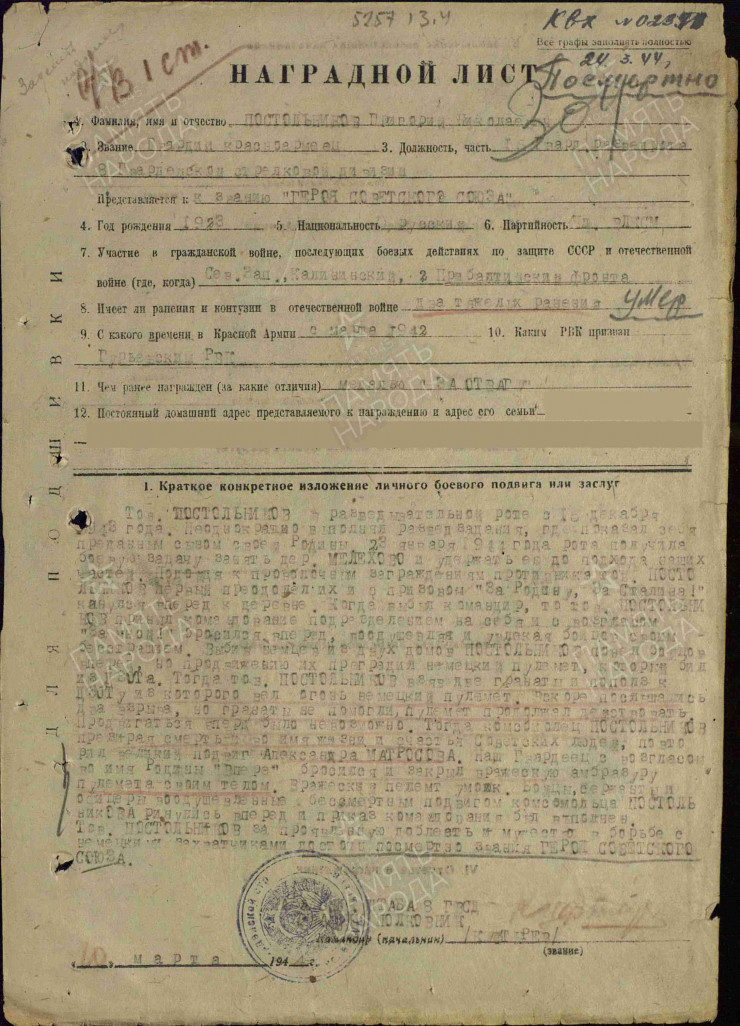 5257 13.4
КВх
Все графы заполнять полностью
24.3.44,
Посмертно
О/В I ст.
НАГРАДНОЙ ЛИСТ
1. Фамилия, имя и отчество ПОСТОЛЬНИКОВ Григорий
2. Звание Гвардии красноармеец 3. Должность, часть
8 Гвардейской стрелковой дивизии
Представляется к к званию "ГЕРОЯ СОВЕТСКОГО СОЮЗА"
4. Год рождения 1923 5. Национальность русский 6. Партийность
7. Участие в гражданской войне, последующих боевых действиях по защите СССР и отечественной
войне (где, когда) Сев.Зап., Калининский, 2 Прибалтийский фронта
8. Имеет ли ранения и контузии в отечественной войне два тяжелых ранения умер
9. С какого времени в Красной Армии с марта 1942 10. Каким РВК призван
Гурьевским РВК
11. Чем ранее награжден (за какие отличия) медалью "ЗА ОТВАГУ"
12. Постоянный домашний адрес представляемого к награждению и адрес его семьи
ДЛЯ ПОДШИВКИ
1. Краткое конкретное изложение личного боевого подвига или заслуг
Тов. ПОСТОЛЬНИКОВ в разведывательной роте с декабря
года. Неоднократно выполняя разведзадания, где показал себя
преданным сыном своей Родины. 23 января года рота получила
боевую задачу занять дер. МЕЛЕХОВО и удержать ее до подхода наших
частей. Подойдя к проволочным заграждениям противника тов. ПОСТО
ЛЬНИКОВ первый преодолел их и с призывом "За Родину, за Сталина!"
кинулся вперед к деревне. Когда выбыл командир, то тов. ПОСТОЛЬНИ
КОВ принял командование подразделением на себя и с возгласом
бросился вперед, воодушевляя и увлекая бойцов своим
бесстрашием. Выбив немцев из двух домов ПОСТОЛЬНИКОВ повел бойцов
вперед, но продвижению их преградил немецкий пулемет, который бил
из ДЗОТа. Тогда тов. ПОСТОЛЬНИКОВ взяв две гранаты пополз к
ДЗОТу из которого вел огонь немецкий пулемет. Вскоре послышались
два взрыва, но гранаты не помогли, пулемет продолжал действовать
Продвигаться вперд было невозможно. Тогда комсомолец ПОСТОЛЬНИКОВ
презирая смерть во имя жизни и счастья Советских людей, повто
рил великий подвиг Александра МАТРОСОВА. Наш Гвардеец с возгласом
во имя Родины "Вперед" бросился и закрыл вражескую амбразуру
пулемета своим телом. Вражеский пелемт умолк. Бойцы, сержанты и
офицеры воодушевленные бессмертным подвигом комсомольца ПОСТОЛЬ
НИКОВА ринулись вперед и приказ командования был выполнен.
Тов. ПОСТОЛЬНИКОВ за проявленую доблесть и мужество в борьбе с
немецкими захватчиками достоин посмертно звания ГЕРОЯ СОВЕТСКОГО
СОЮЗА.
ШТАБА 8 ГВСД
ПОЛКОВНИК
Командир (начальник)
(звание)
"10" марта 194 г.
ПАМЯТЬ НАРОДА